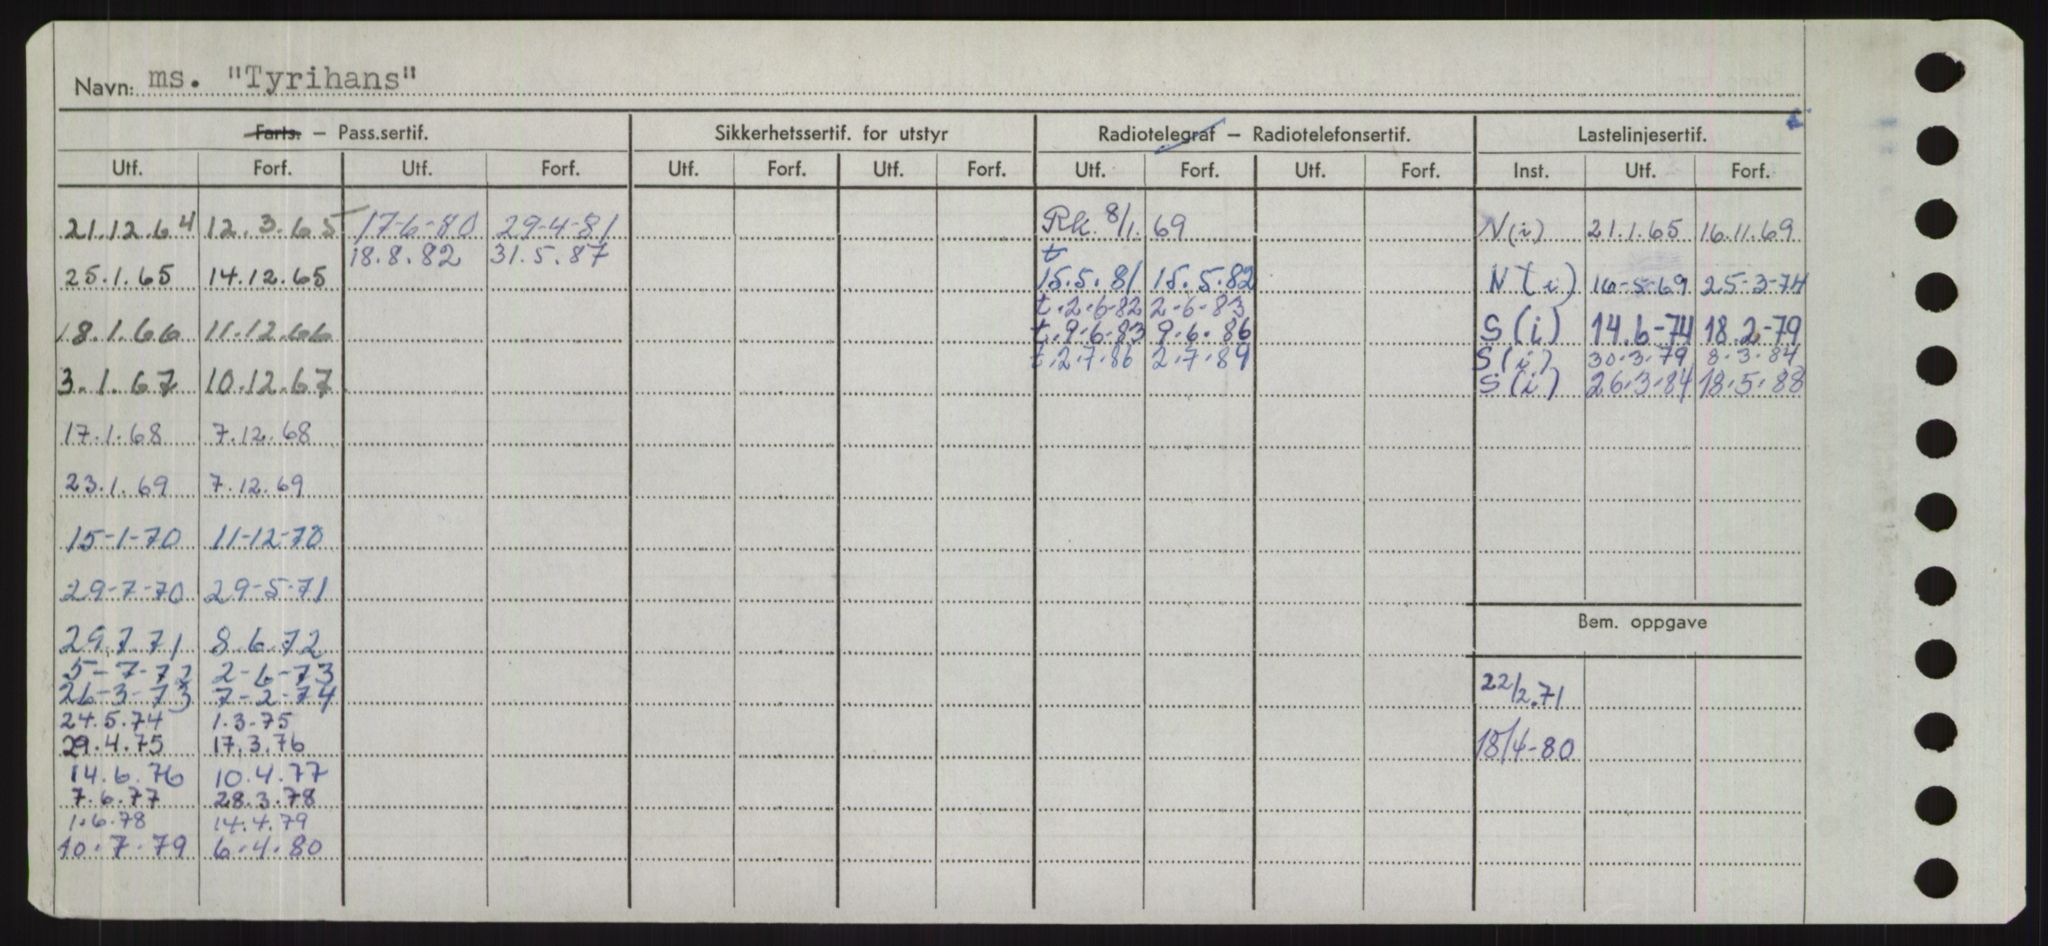 Navn: ms. "Tyrihans"
Farts. – Pass.sertif. Sikkerhetssertif. for utstyr Radiotelegraf – Radiotelefonsertif. Lastelinjesertif.
Utf. Forf. Utf. Forf. Utf. Forf. Utf. Forf. Utf. Forf. Utf. Forf. Inst. Utf. Forf.
21.12.64 12.3.65 17-6-80 29-4-81 Rk. 8/1. 69 N(i) 21.1.65 16.11.69
18.8.82 31.5.87 t
25.1.65 14.12.65 15.5.81 15.5.82 N(i) 16-5-69 25-3-74
t.2-6-82 2-6-83
18.1.66 11.12.66 t.9.6.83 9.6.86 S(i) 14.6-74 18.2-79
t.2.7.86 2.7.89 S(i) 30.3.79 8.3.84
3.1.67 10.12.67 S(i) 26.3.84 18.5.88
17.1.68 7.12.68
23.1.69 7.12.69
15-1-70 11-12-70
29-7-70 29-5-71
Bem. oppgave
29.7.71 8.6.72
5-7-72 2-6-73
26-3-73 7-2-74 22/2.71
24.5.74 1.3.75
29.4.75 17.3.76 18/4-80
14.6.76 10.4.77
7.6.77 28.3.78
1.6.78 14.4.79
10.7.79 6.4.80